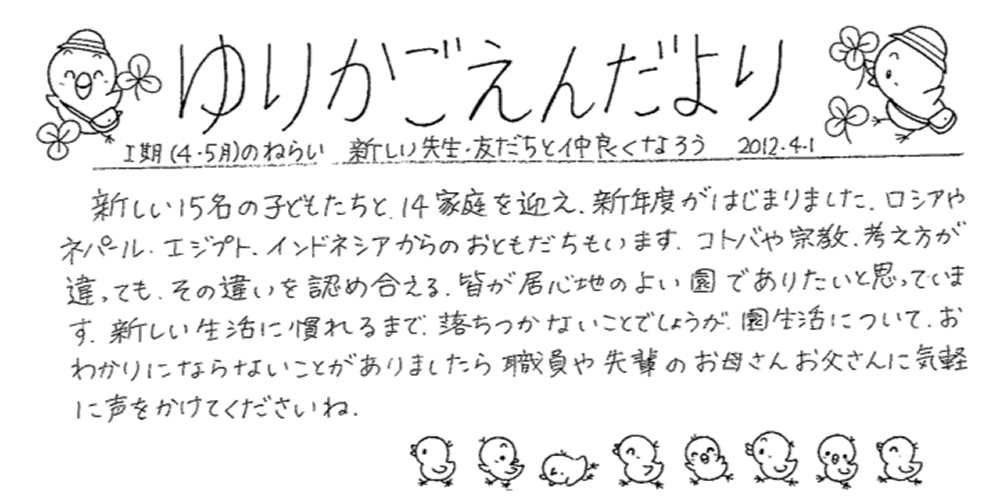 ゆりかごえんだより
I期(4・5月)のねらい 新しい先生・友だちと仲良くなろう 2012.4.1
新しい15名の子どもたちと、14家庭を迎え、新年度がはじまりました。ロシアや
ネパール・エジプト、インドネシアからのおともだちもいます。コトバや宗教、考え方が
違っても、その違いを認め合える、皆が居心地のよい園でありたいと思っていま
す。新しい生活に慣れるまで、落ちつかないことでしょうが、園生活について、お
わかりにならないことがありましたら職員や先輩のお母さんお父さんに気軽
に声をかけてくださいね。